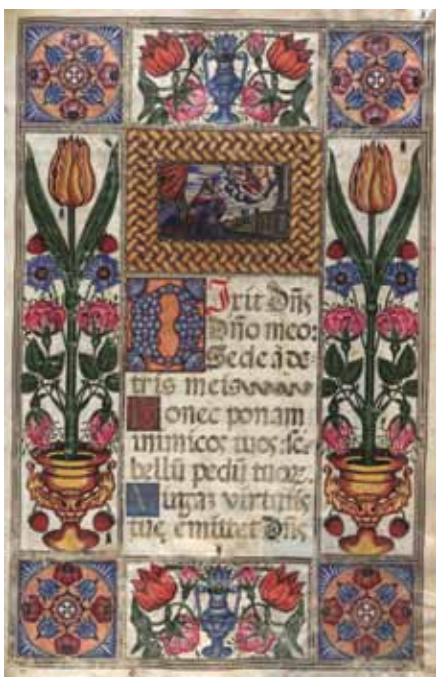 Dixit Dñs
Dño meo:
Sede à de-
xtris meis
Donec ponam
inimicos tuos: sca-
bellũ pedũ tuor.
Virgaz virtutis
tuę emittet Dñs